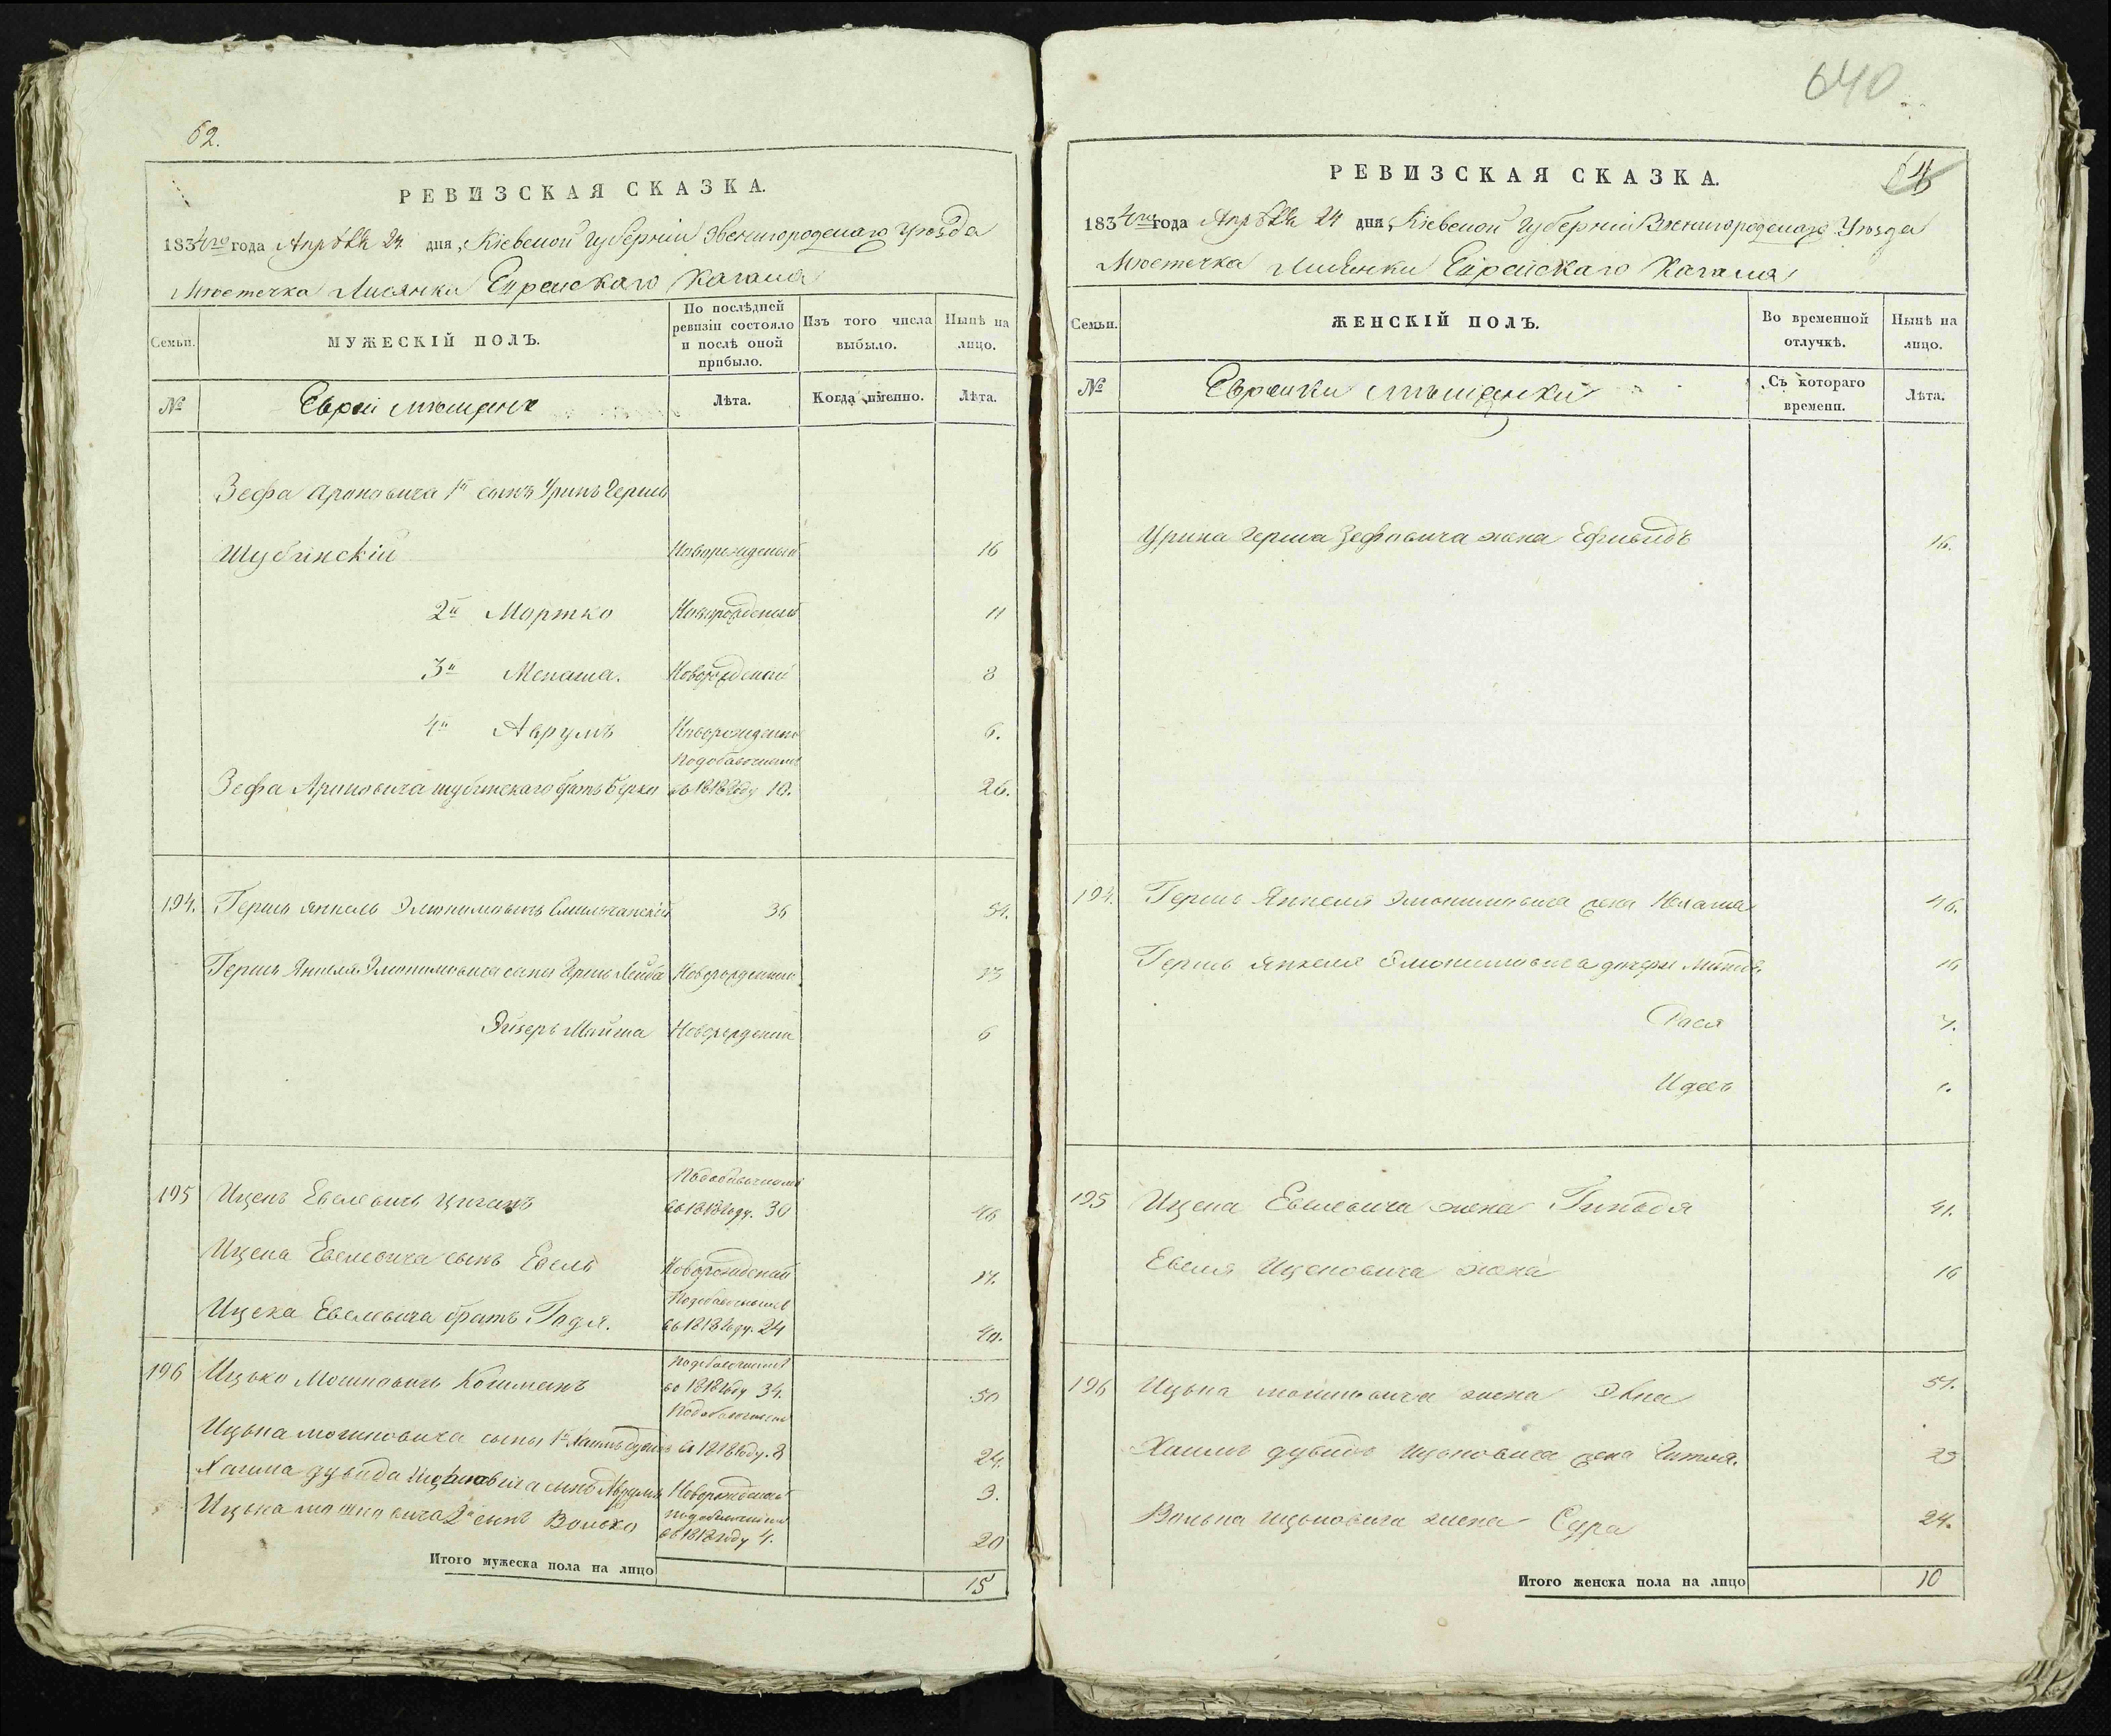 62.
РЕВИЗСКАЯ СКАЗКА.
1834го года Апрѣля 24 дня, Кіевской Губерніи Звенигородскаго Уѣзда
Мѣстечка Лисянки Еврейскаго Кагала
Семьи.
МУЖЕСКІЙ ПОЛЪ.
По послѣдней ревизіи состояло и послѣ оной прибыло.
Изъ того числа выбыло.
Нынѣ на лицо.
№
Евреи мѣщане
Лѣта.
Когда именно.
Лѣта.
Зефа Ароновича 1й сынъ Гершъ
Шубинскій Новорожденый 16
2й Мортко Новорожденый 11
3й Менаша. Новорожденый 8
4й Аврумъ Новорожденый 6.
По добавочнымъ
Зефа Ароновича Шубинскаго братъ Берко въ 1818 году 10. 26.
194. Гершъ Янкель 36 54.
Гершъ Янкеля сыны Лейба Новорожденый 13
Мойша Новорожденый 6
По добавочнымъ
195 Ицекъ Евелевичъ Циганъ въ 1818 году. 30 46
Ицека Евелевича сынъ Евель Новорожденый 17.
По добавочнымъ
Ицека Евелевича братъ Годя. въ 1818 году. 24 40.
По добавочнымъ
196 Ицько Мошковичъ въ 1818 году 34. 50
По добавочнымъ
Ицька Мошковича сыны 1й Хаимъ Дувидъ въ 1818 году. 8 24.
Хаима Дувида Ицьковича сынъ Аврумъ Новорожденый 3.
По добавочнымъ
Ицька Мошковича 2й сынъ Волько въ 1818 году 4. 20
Итого мужеска пола на лицо 15
640
64
РЕВИЗСКАЯ СКАЗКА.
1834го года Апрѣля 24 дня, Кіевской Губерніи Звенигородскаго Уѣзда
Мѣстечка Лисянки Еврейскаго Кагала
Семьи.
ЖЕНСКІЙ ПОЛЪ.
Во временной отлучкѣ.
Нынѣ на лицо.
№
Еврейки мѣщанки
Съ котораго времени.
Лѣта.
Герша Зефовича жена 16.
194. Гершъ Янкеля жена 46.
Гершъ Янкеля дочери 16
Рася 7.
Идесъ 1.
195 Ицека Евелевича жена 41.
Евеля Ицековича жена 16
196 Ицька Мошковича жена 51.
Хаимъ Дувида Ицьковича жена Гитля. 23
Волька Ицьковича жена Сура 24.
Итого женска пола на лицо 10